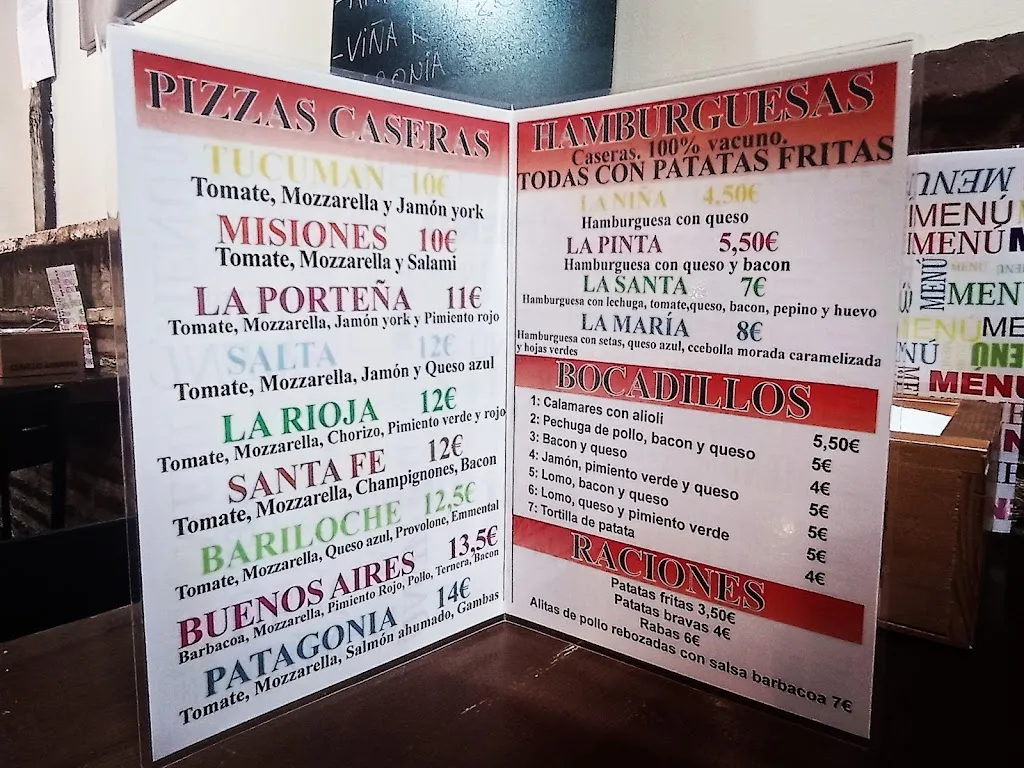 -VIÑA
PIZZAS CASERAS
TUCUMAN 10€
Tomate, Mozzarella y Jamón york
MISIONES 10€
Tomate, Mozzarella y Salami
LA PORTEÑA 11€
Tomate, Mozzarella, Jamón york y Pimiento rojo
SALTA 12€
Tomate, Mozzarella, Jamón y Queso azul
LA RIOJA 12€
Tomate, Mozzarella, Chorizo, Pimiento verde y rojo
SANTA FE 12€
Tomate, Mozzarella, Champignones, Bacon
BARILOCHE 12,5€
Tomate, Mozzarella, Queso azul, Provolone, Emmental
BUENOS AIRES 13,5€
Barbacoa, Mozzarella, Pimiento Rojo, Pollo, Ternera, Bacon
PATAGONIA 14€
Tomate, Mozzarella, Salmón ahumado, Gambas
HAMBURGUESAS
Caseras. 100% vacuno.
TODAS CON PATATAS FRITAS
LA NIÑA 4,50€
Hamburguesa con queso
LA PINTA 5,50€
Hamburguesa con queso y bacon
LA SANTA 7€
Hamburguesa con lechuga, tomate,queso, bacon, pepino y huevo
LA MARÍA 8€
Hamburguesa con setas, queso azul, ccebolla morada caramelizada
y hojas verdes
BOCADILLOS
1: Calamares con alioli 5,50€
2: Pechuga de pollo, bacon y queso 5€
3: Bacon y queso 4€
4: Jamón, pimiento verde y queso 5€
5: Lomo, bacon y queso 5€
6: Lomo, queso y pimiento verde 5€
7: Tortilla de patata 4€
RACIONES
Patatas fritas 3,50€
Patatas bravas 4€
Rabas 6€
Alitas de pollo rebozadas con salsa barbacoa 7€
MENÚ
MENÚ
MENÚ
MENÚ
MENÚ
MENÚ
MENÚ
MENÚ
MENÚ